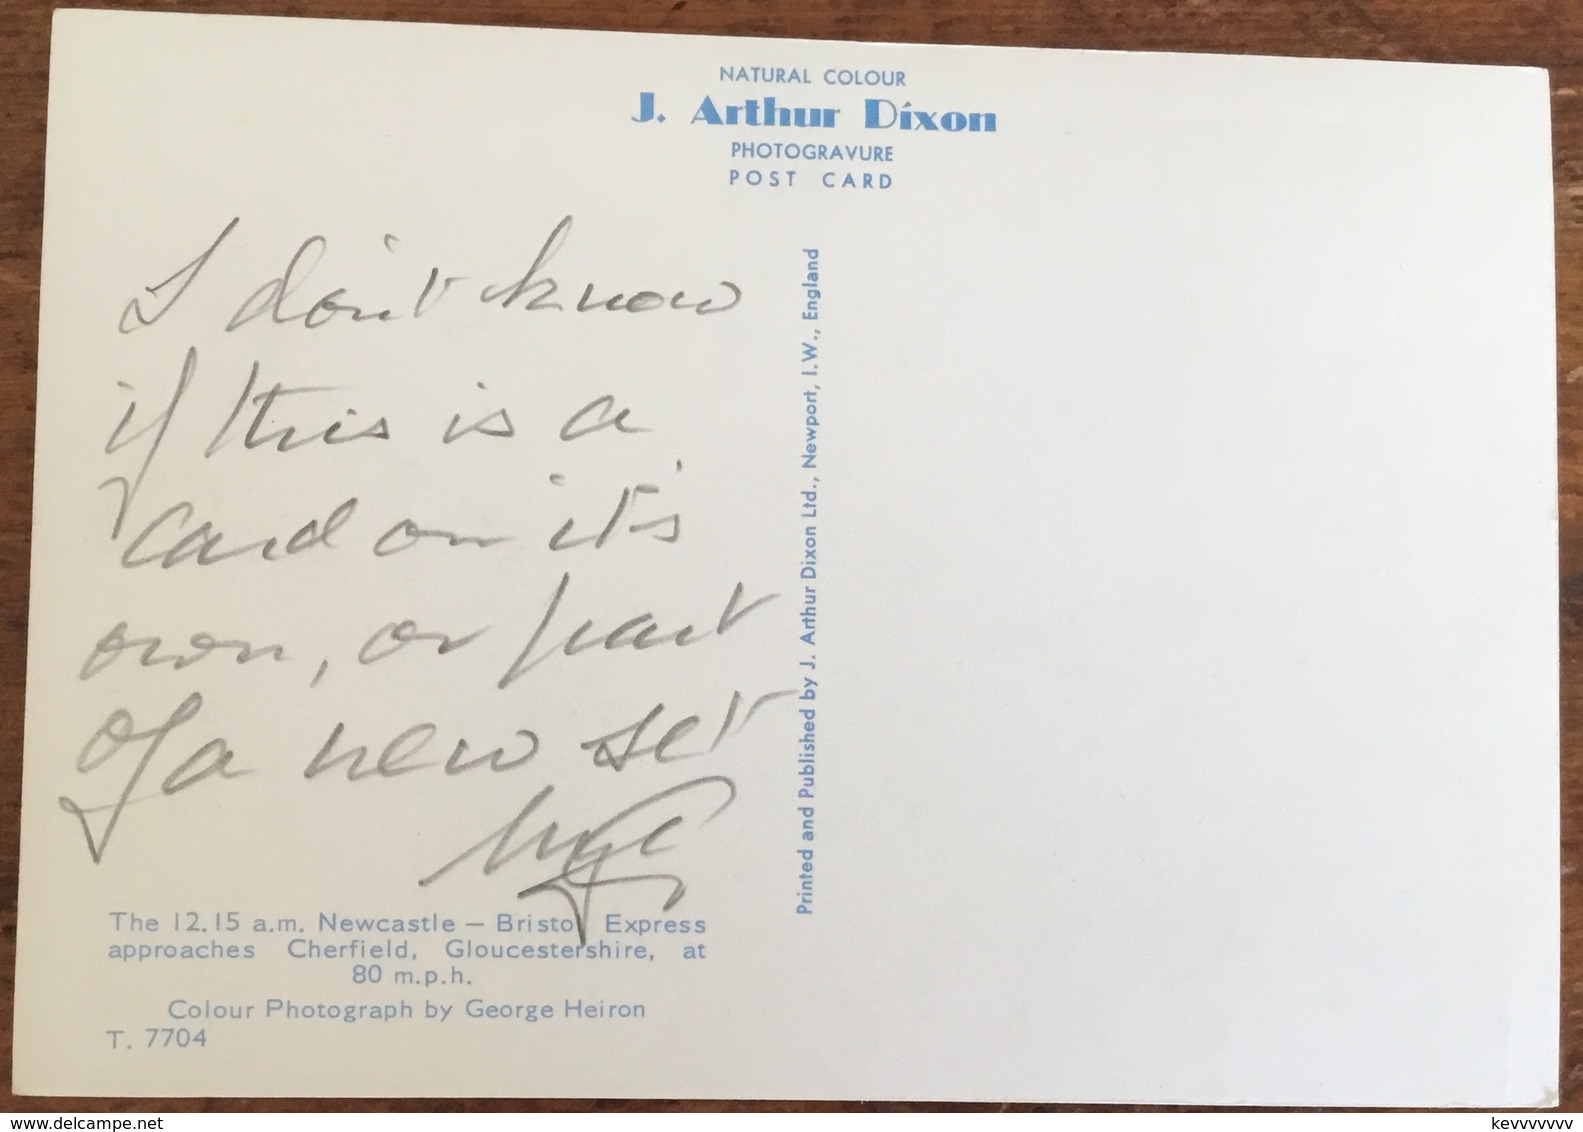 NATURAL COLOUR
J. Arthur Dixon
PHOTOGRAVURE
POST CARD
I don't know
if this is a
card on it's
own, or part
of a new set
Printed and Published by J. Arthur Dixon Ltd., Newport, I.W., England
The 12.15 a.m. Newcastle – Bristol Express
approaches Cherfield, Gloucestershire, at
80 m.p.h.
Colour Photograph by George Heiron
T. 7704
delcampe.net
kevvvvvvv